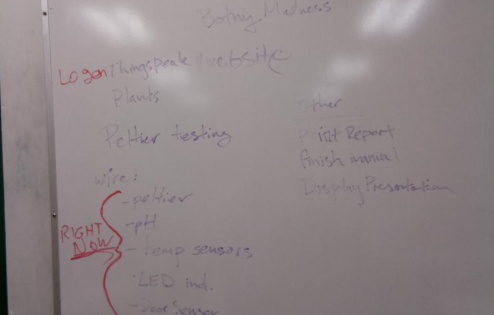 Botny Madness
Logon Thingspeak website
Plants
Peltier testing
wire:
-peltier
-pH
- temp sensors
LED ind.
- Door Sensor
RIGHT
NOW
other
Print Report
finish manual
Display Presentation